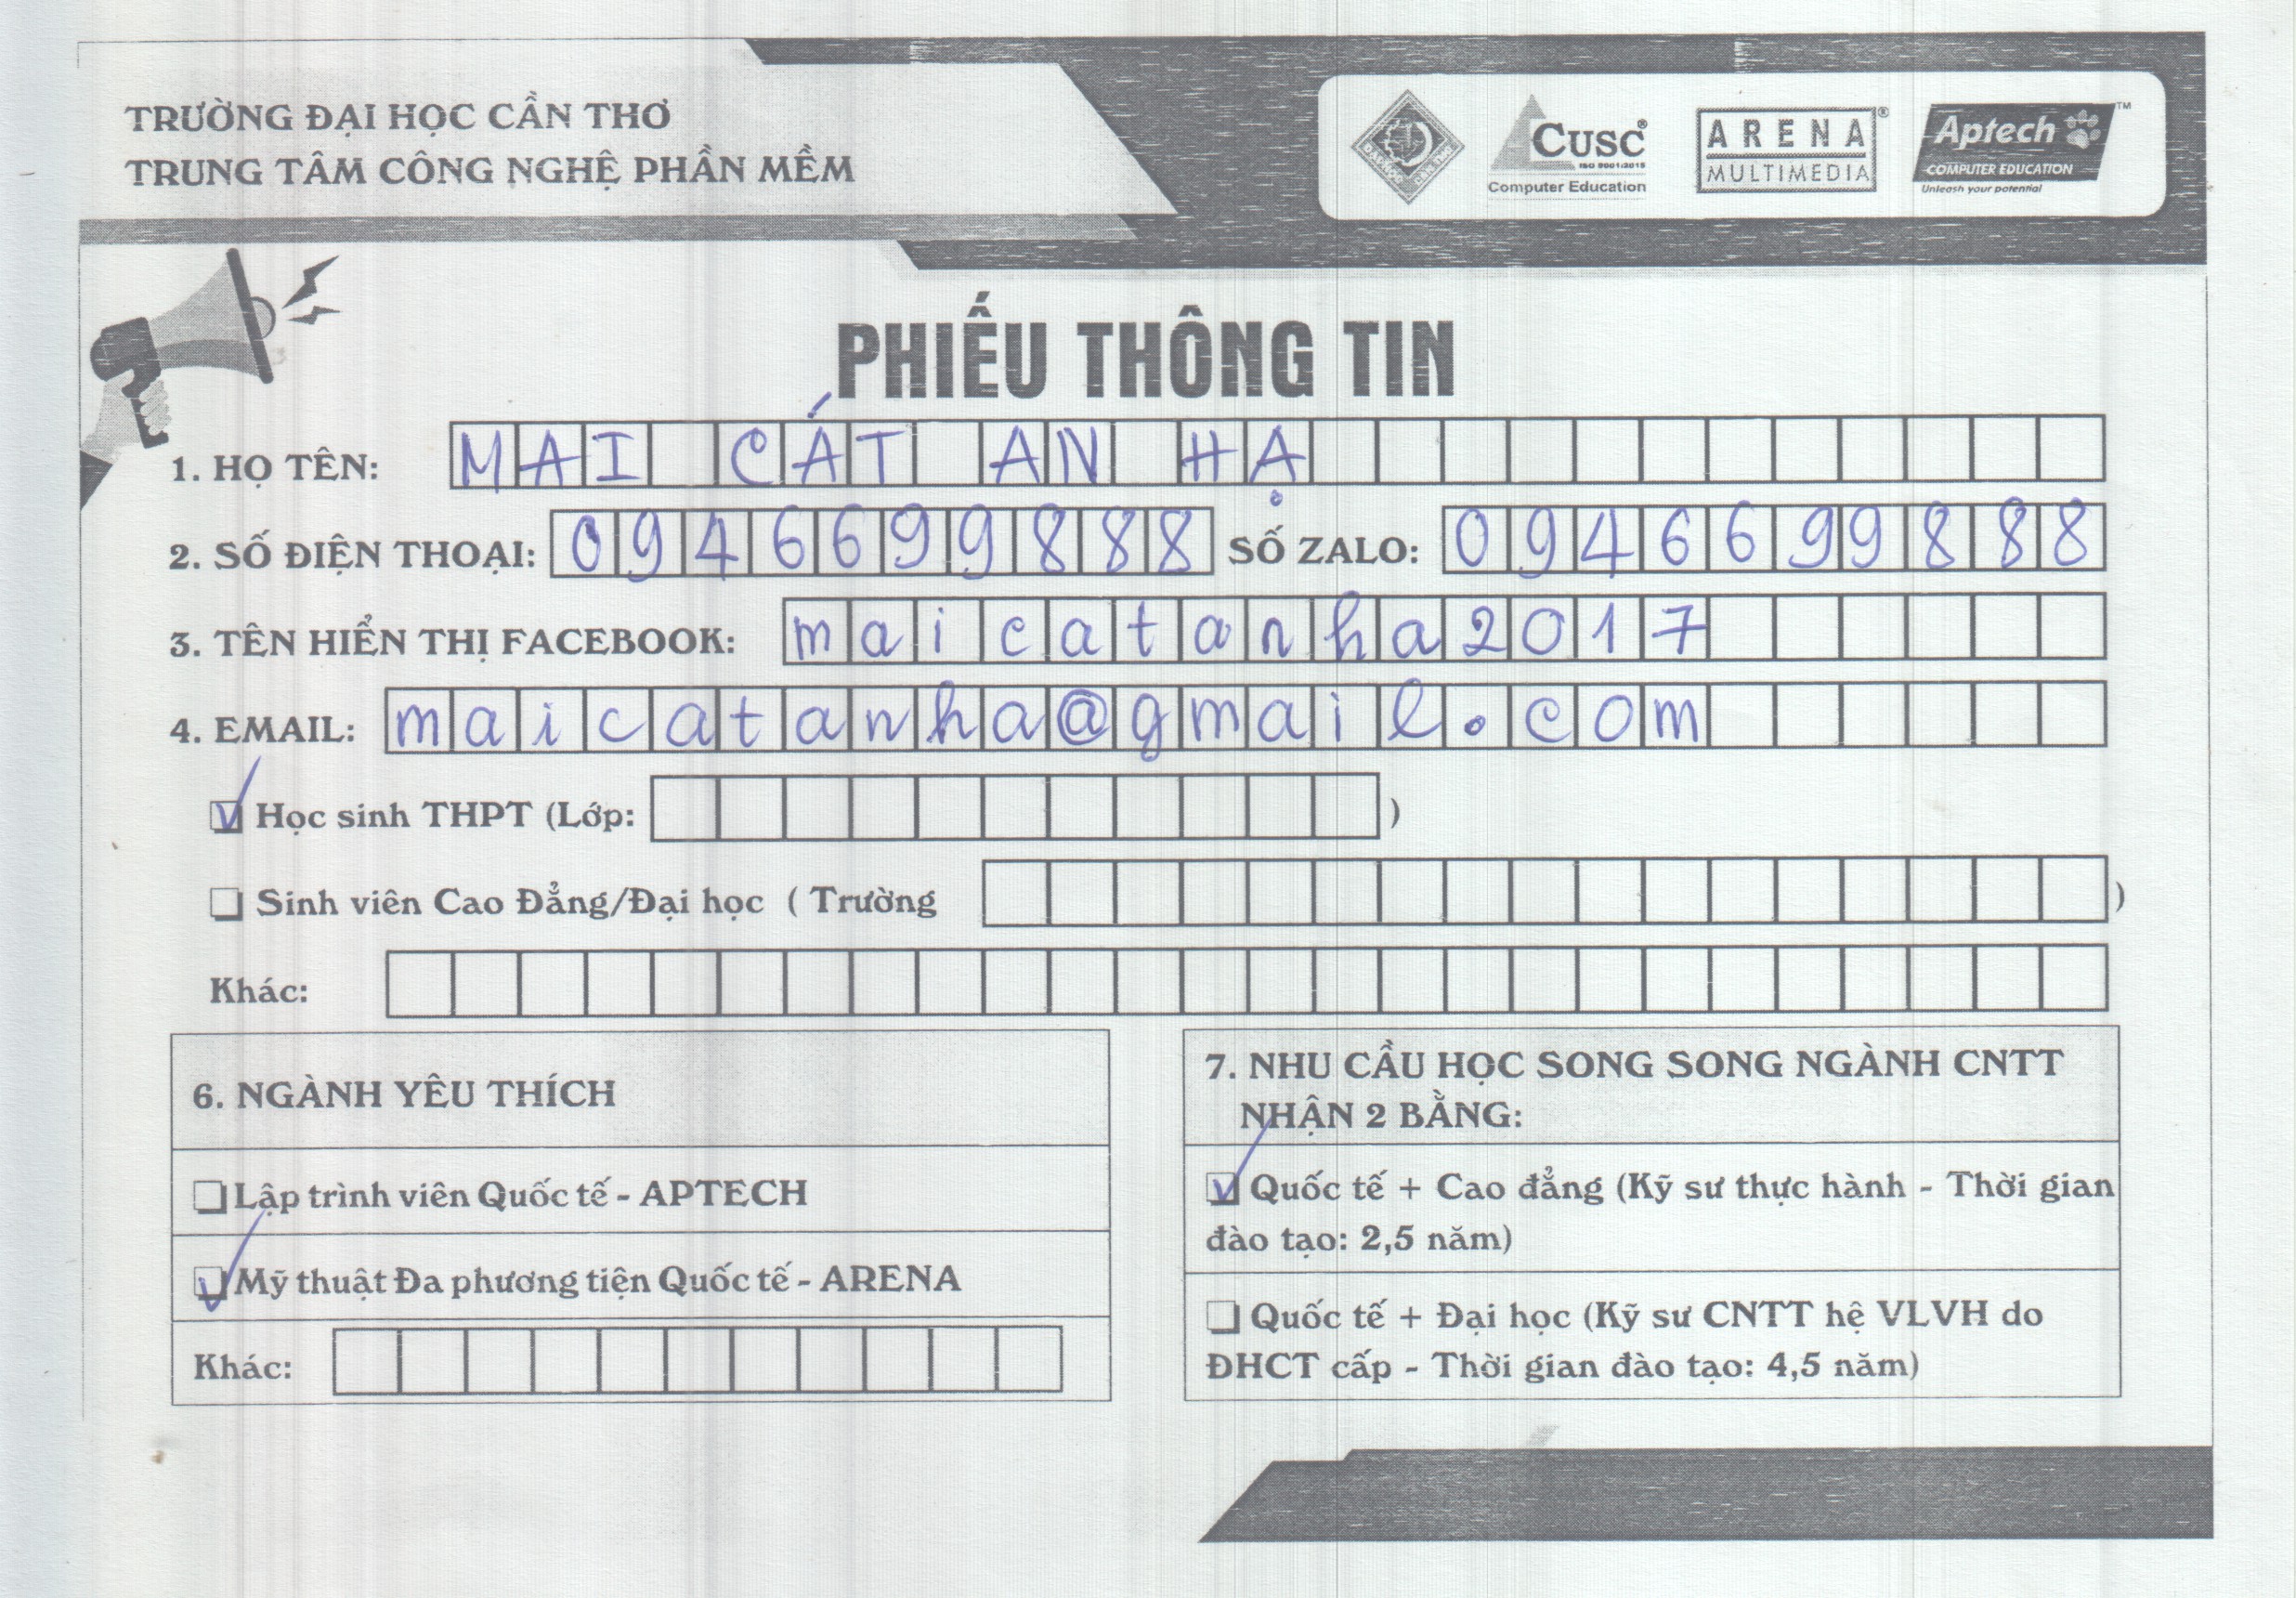 TRƯỜNG ĐẠI HỌC CẦN THƠ
TRUNG TÂM CÔNG NGHỆ PHẦN MỀM
CUSC®
ISO 9001:2015
Computer Education
ARENA®
MULTIMEDIA
Aptech™
COMPUTER EDUCATION
Unleash your potential
PHIẾU THÔNG TIN
1. HỌ TÊN: MAI CÁT AN HẠ
2. SỐ ĐIỆN THOẠI: 0946699888 SỐ ZALO: 0946699888
3. TÊN HIỂN THỊ FACEBOOK: maicatanha2017
4. EMAIL: maicatanha@gmail.com
Học sinh THPT (Lớp: )
Sinh viên Cao Đẳng/Đại học ( Trường )
Khác:
6. NGÀNH YÊU THÍCH
Lập trình viên Quốc tế - APTECH
Mỹ thuật Đa phương tiện Quốc tế - ARENA
Khác:
7. NHU CẦU HỌC SONG SONG NGÀNH CNTT
NHẬN 2 BẰNG:
Quốc tế + Cao đẳng (Kỹ sư thực hành - Thời gian
đào tạo: 2,5 năm)
Quốc tế + Đại học (Kỹ sư CNTT hệ VLVH do
ĐHCT cấp - Thời gian đào tạo: 4,5 năm)